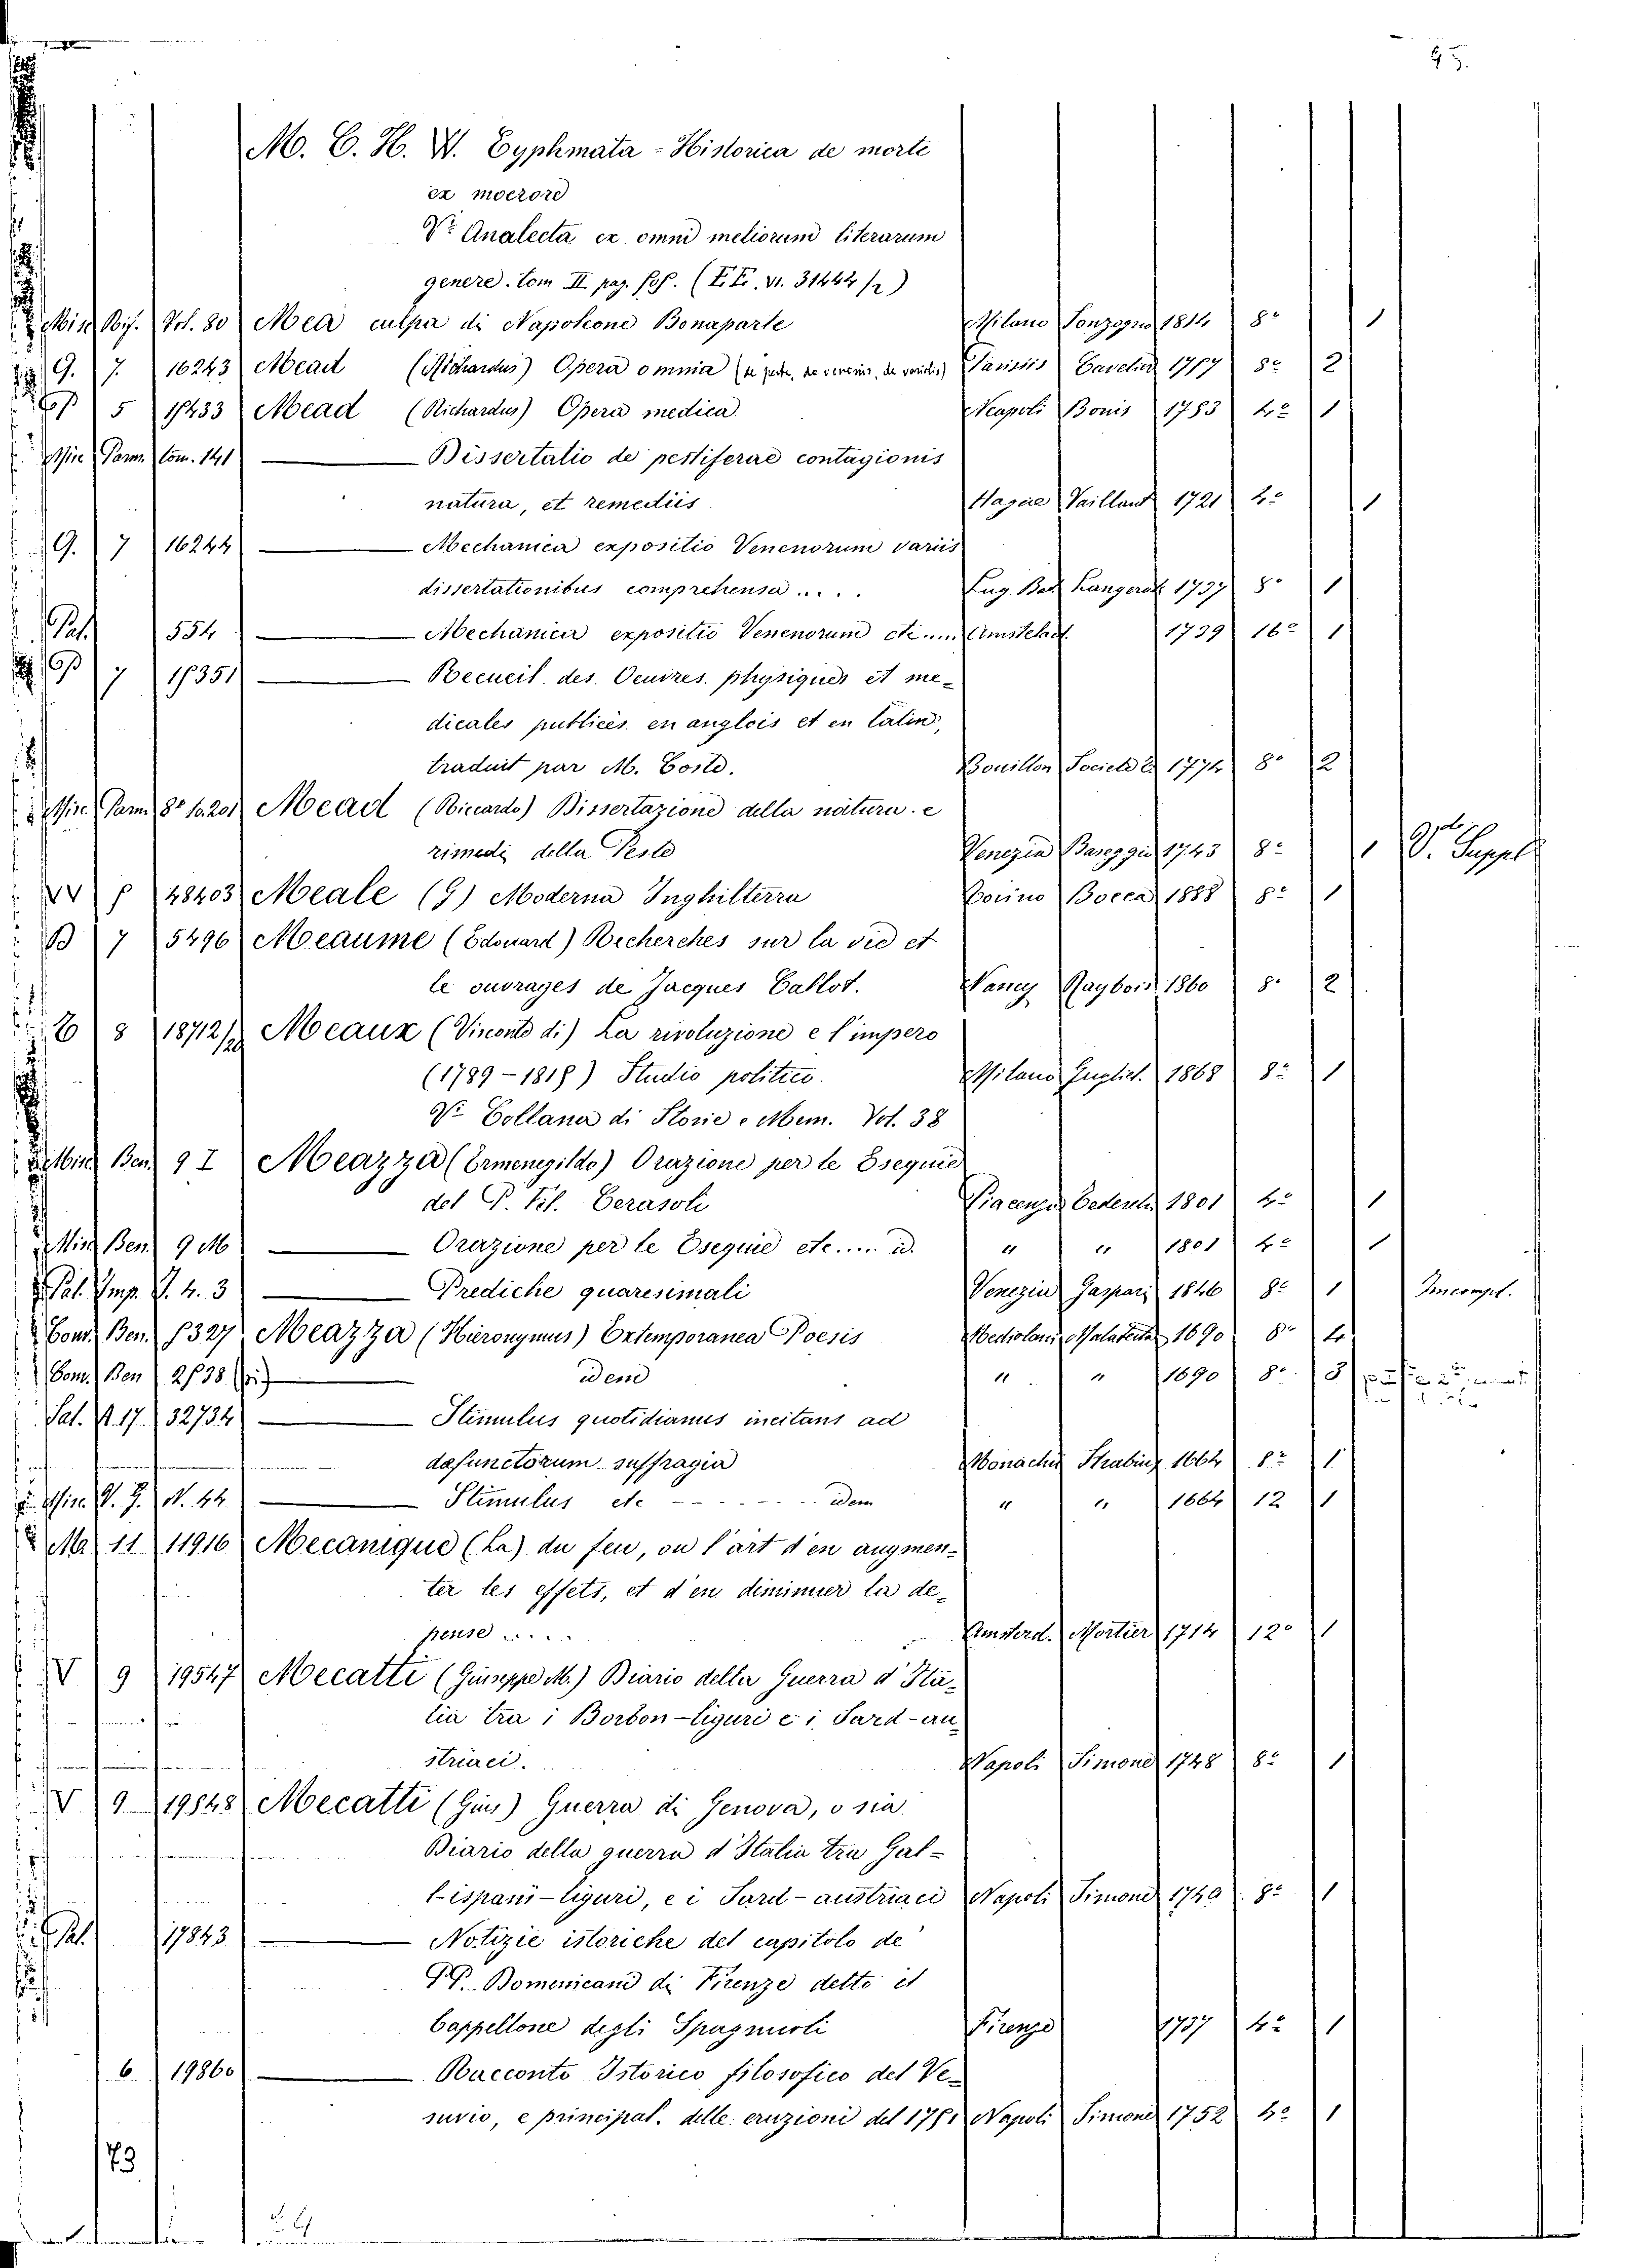 95.
M. C. H. W. Eyphmata - Historica de morte
ex moerore
V.i Analecta ex omni meliorum literarum
genere. tom II pag. (F.F. VI. 31442/2)
Misc. Vol. 80 Mea culpa di Napoleone Bonaparte Milano Sonzogno 1814 8° 1
G. 7. 16243 Mead (Richardus) Opera omnia Parisiis Cavelier 8° 2
5 Mead (Richardus) Opera medica Neapoli Bonis 1783 4° 1
Misc. Parm. tom. 141 — Dissertatio de pestiferae contagionis
natura, et remediis Hagae Vaillant 1721 4° 1
G. 7 16244 — Mechanica expositio Venenorum variis
dissertationibus comprehensa..... Lug. Bat. Langerak 1737 8° 1
Pal. 554 — Mechanica expositio Venenorum etc..... Amstelod. 1739 16° 1
7 — Recueil des Oeuvres physiques et me-
dicales publiées en anglois et en latin,
traduit par M. Coste. Bouillon Societé 1774 8° 2
Misc. Parm. 8° to. 201 Mead (Riccardo) Dissertazione della natura e
rimedi della Peste Venezia Bareggii 1743 8° 1 V. Suppl.
48403 Meale (G) Moderna Inghilterra Torino Bocca 1888 8° 1
B 7 5496 Meaume (Edouard) Recherches sur la vie et
le ouvrages de Jacques Callot. Nancy Raybois 1860 8° 2
8 18712/ Meaux (Visconte di) La rivoluzione e l'impero
(1789-1815) Studio politico. Milano Guglielm. 1868 8° 1
V.i Collana di Storie e Mem. Vol. 38
Misc. Ben. 9 I Meazza (Ermenegildo) Orazione per le Esequie
del P. Fil. Cerasoli Piacenza Tedeschi 1801 4° 1
Misc. Ben. 9 M — Orazione per le Esequie etc..... id. " " 1801 4° 1
Pal. Imp. V. 4. 3 — Prediche quaresimali Venezia Gaspari 1846 8° 1 Incompl.
Cons. Ben. 1327 Meazza (Hieronymus) Extemporanea Poesis Mediolani Malatesta 1690 8°
Cons. Ben — idem " " 1690 8° 3
Sal. 17. 32734 — Stimulus quotidianus incitans ad
defunctorum suffragia Monachii Strabing 1664 8° 1
Misc. V. 7. N. 44 — Stimulus etc - - - - - - - idem " " 1664 12 1
Ma 11 11916 Mecanique (La) du feu, ou l'art d'en augmen-
ter les effets, et d'en diminuer la de-
pense..... Amsterd. Mortier 1714 12° 1
V 9 19547 Mecatti (Giuseppe M.) Diario della Guerra d'Ita-
lia tra i Borbon-liguri e i Sard-au-
striaci. Napoli Simone 1748 8° 1
V 9 19848 Mecatti (Gius) Guerra di Genova, o sia
Diario della guerra d'Italia tra Gal-
l-ispani-liguri, e i Sard-austriaci Napoli Simone 1749 8° 1
Pal. 17843 — Notizie istoriche del capitolo de'
PP. Domenicani di Firenze detto il
Cappellone degli Spagnuoli Firenze 1737 4° 1
6. 19860 — Racconto Istorico filosofico del Ve-
suvio, e principal. delle eruzioni del 1751 Napoli Simone 1752 4° 1
73